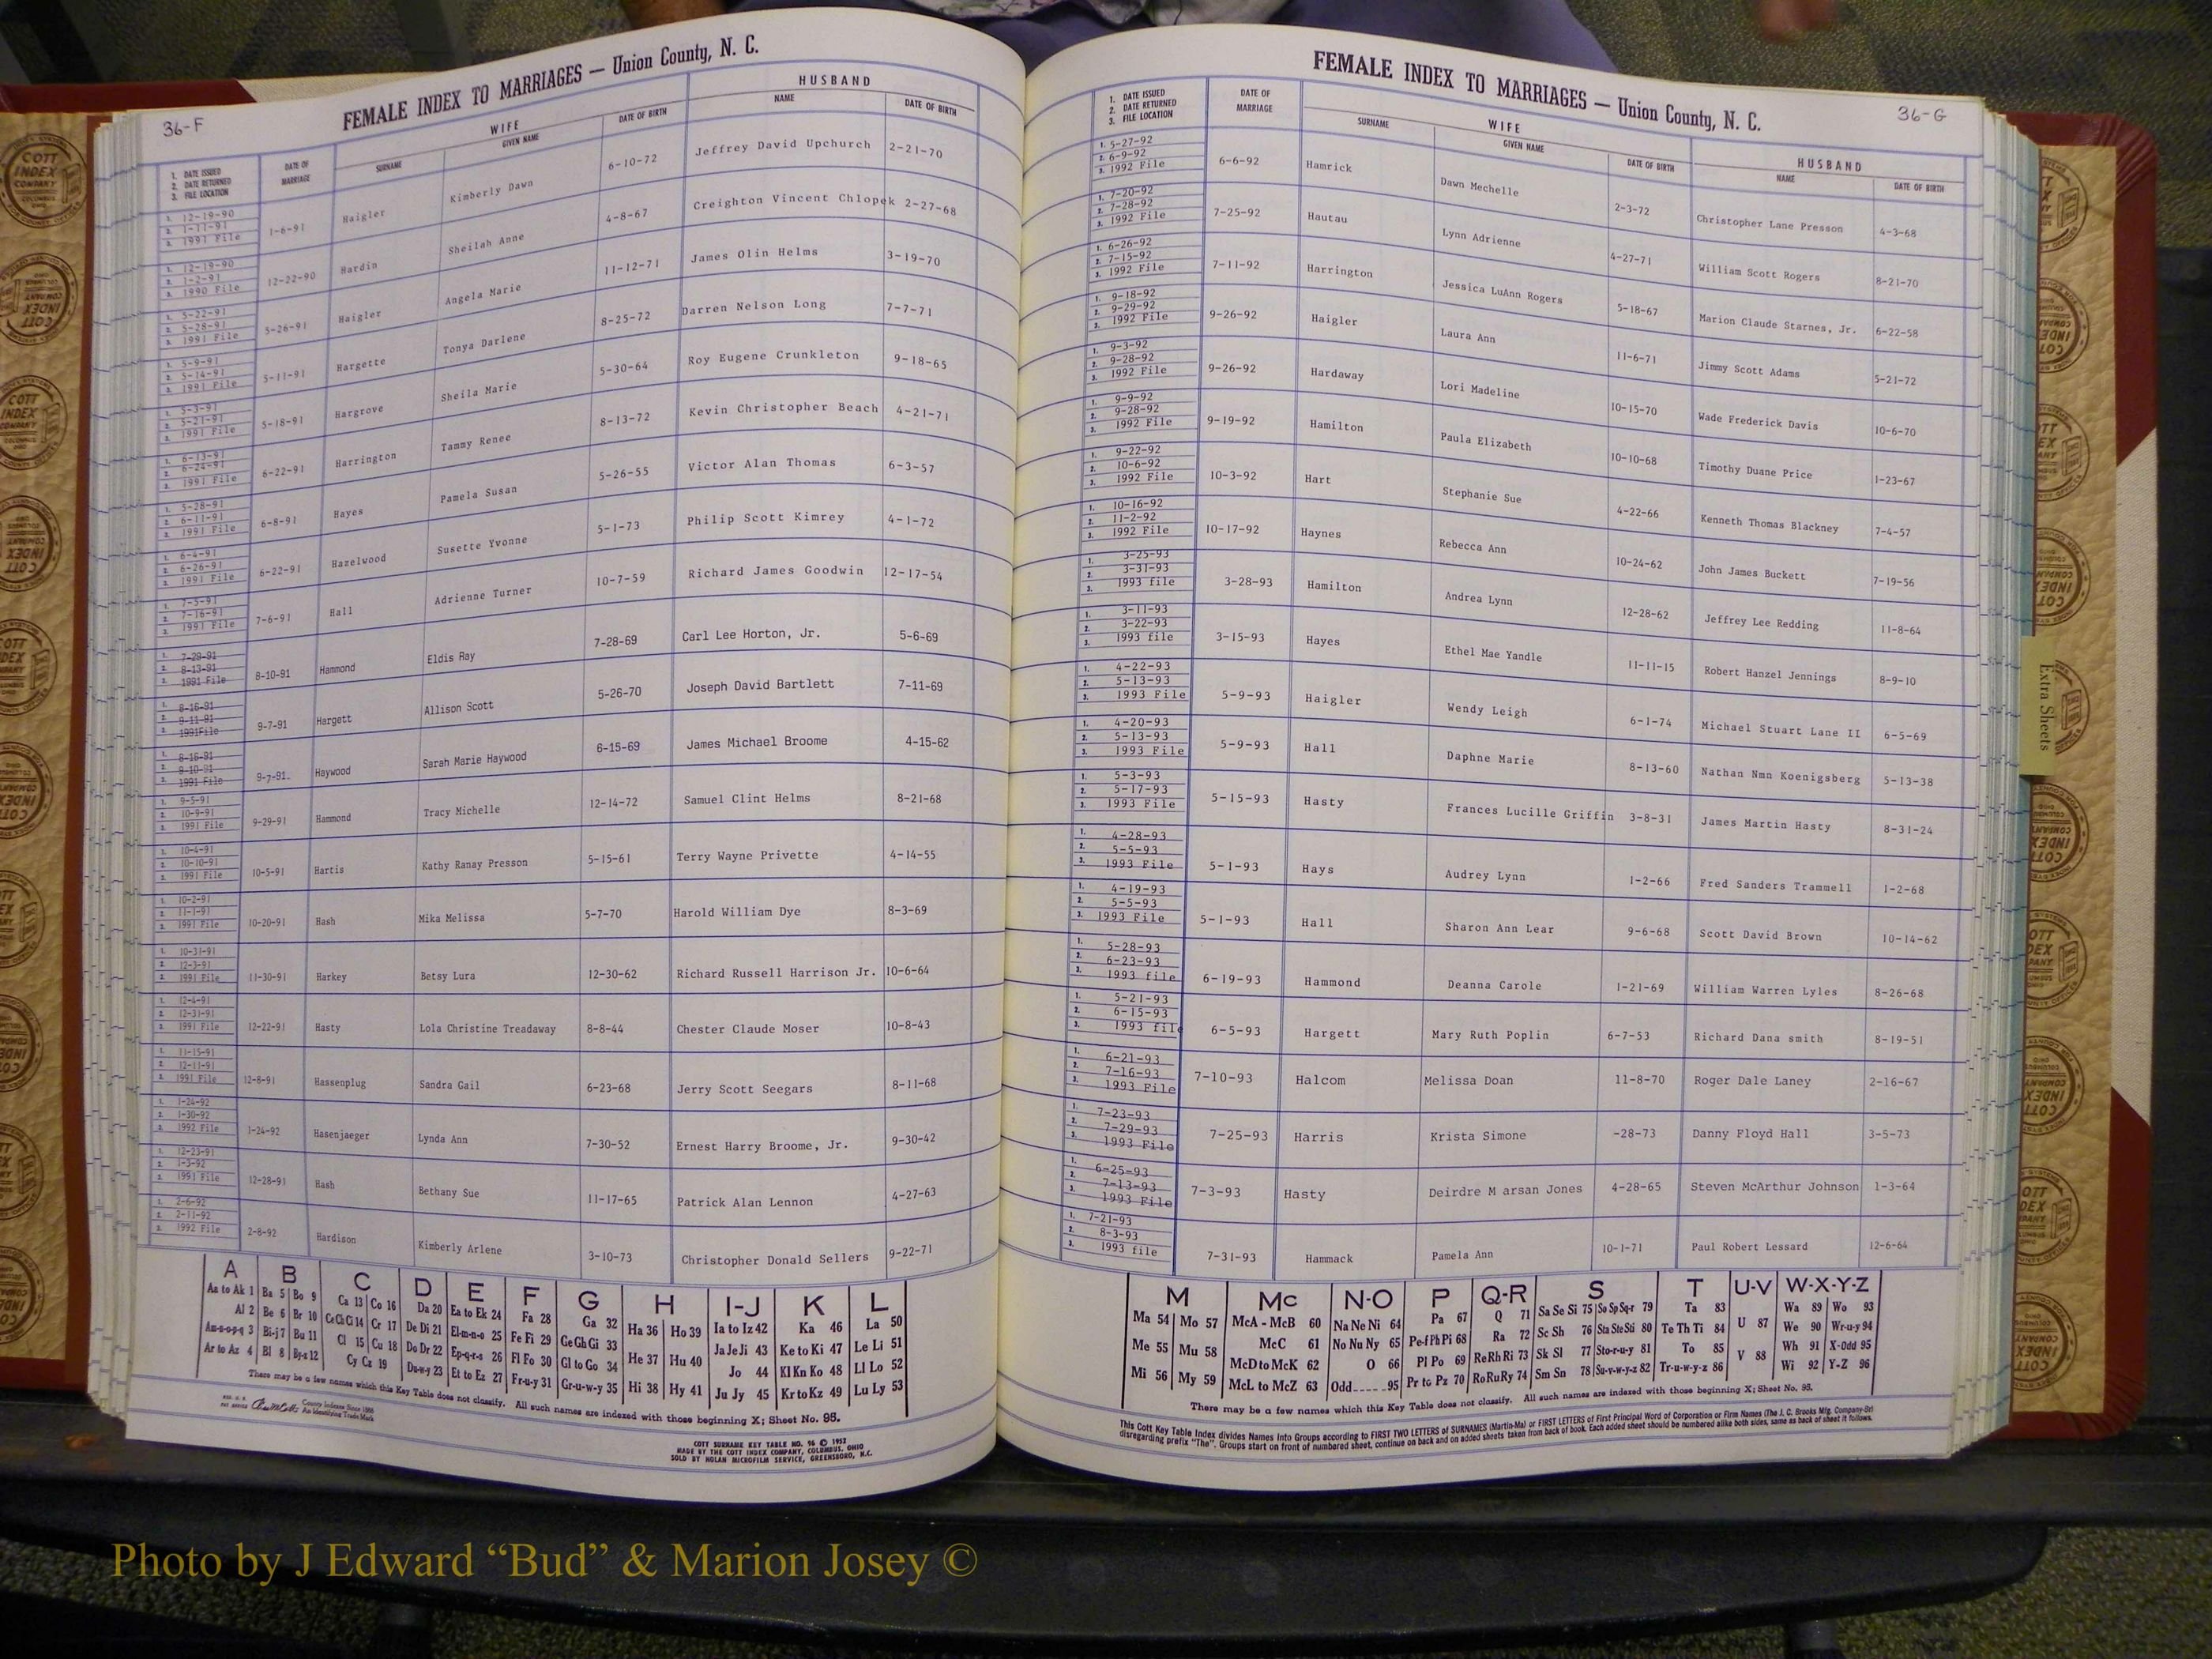 36-F
FEMALE INDEX TO MARRIAGES — Union County, N. C.
1. DATE ISSUED
2. DATE RETURNED
3. FILE LOCATION
DATE OF MARRIAGE
WIFE
SURNAME GIVEN NAME DATE OF BIRTH
HUSBAND
NAME DATE OF BIRTH
1. 12-19-90
2. 1-11-91
3. 1991 File
1-6-91 Haigler Kimberly Dawn 6-10-72 Jeffrey David Upchurch 2-21-70
1. 12-19-90
2. 1-2-91
3. 1990 File
12-22-90 Hardin Sheilah Anne 4-8-67 Creighton Vincent Chlopek 2-27-68
1. 5-22-91
2. 5-28-91
3. 1991 File
5-26-91 Haigler Angela Marie 11-12-71 James Olin Helms 3-19-70
1. 5-9-91
2. 5-14-91
3. 1991 File
5-11-91 Hargette Tonya Darlene 8-25-72 Darren Nelson Long 7-7-71
1. 5-3-91
2. 5-21-91
3. 1991 File
5-18-91 Hargrove Sheila Marie 5-30-64 Roy Eugene Crunkleton 9-18-65
1. 6-13-91
2. 6-24-91
3. 1991 File
6-22-91 Harrington Tammy Renee 8-13-72 Kevin Christopher Beach 4-21-71
1. 5-28-91
2. 6-11-91
3. 1991 File
6-8-91 Hayes Pamela Susan 5-26-55 Victor Alan Thomas 6-3-57
1. 6-4-91
2. 6-26-91
3. 1991 File
6-22-91 Hazelwood Susette Yvonne 5-1-73 Philip Scott Kimrey 4-1-72
1. 7-5-91
2. 7-16-91
3. 1991 File
7-6-91 Hall Adrienne Turner 10-7-59 Richard James Goodwin 12-17-54
1. 7-29-91
2. 8-13-91
3. 1991 File
8-10-91 Hammond Eldis Ray 7-28-69 Carl Lee Horton, Jr. 5-6-69
1. 8-16-91
2. 9-11-91
3. 1991File
9-7-91 Hargett Allison Scott 5-26-70 Joseph David Bartlett 7-11-69
1. 8-15-91
2. 9-10-91
3. 1991 File
9-7-91 Haywood Sarah Marie Haywood 6-15-69 James Michael Broome 4-15-62
1. 9-5-91
2. 10-9-91
3. 1991 File
9-29-91 Hammond Tracy Michelle 12-14-72 Samuel Clint Helms 8-21-68
1. 10-4-91
2. 10-10-91
3. 1991 File
10-5-91 Hartis Kathy Ranay Presson 5-15-61 Terry Wayne Privette 4-14-55
1. 10-2-91
2. 11-1-91
3. 1991 File
10-20-91 Hash Mika Melissa 5-7-70 Harold William Dye 8-3-69
1. 10-31-91
2. 12-3-91
3. 1991 File
11-30-91 Harkey Betsy Lura 12-30-62 Richard Russell Harrison Jr. 10-6-64
1. 12-4-91
2. 12-31-91
3. 1991 File
12-22-91 Hasty Lola Christine Treadaway 8-8-44 Chester Claude Moser 10-8-43
1. 11-15-91
2. 12-11-91
3. 1991 File
12-8-91 Hassenplug Sandra Gail 6-23-68 Jerry Scott Seegars 8-11-68
1. 1-24-92
2. 1-30-92
3. 1992 File
1-24-92 Hasenjaeger Lynda Ann 7-30-52 Ernest Harry Broome, Jr. 9-30-42
1. 12-23-91
2. 1-3-92
3. 1991 File
12-28-91 Hash Bethany Sue 11-17-65 Patrick Alan Lennon 4-27-63
1. 2-6-92
2. 2-11-92
3. 1992 File
2-8-92 Hardison Kimberly Arlene 3-10-73 Christopher Donald Sellers 9-22-71
A B C D E F G H I-J K L
Aa to Ak 1 Ba 5 Bo 9 Ca 13 Co 16 Da 20 Ea to Ek 24 Fa 28 Ga 32 Ha 36 Ho 39 Ia to Iz 42 Ka 46 La 50
Al 2 Be 6 Br 10 CeChCi 14 Cr 17 De Di 21 El-m-n-o 25 Fe Fi 29 GeGhGi 33 He 37 Hu 40 JaJeJi 43 Ke to Ki 47 Le Li 51
Am-n-o-p-q 3 Bi-j 7 Bu 11 Cl 15 Cu 18 Do Dr 22 Ep-q-r-s 26 Fl Fo 30 Gl to Go 34 Hi 38 Hy 41 Jo 44 Kl Kn Ko 48 Ll Lo 52
Ar to Az 4 Bl 8 By-z 12 Cy Cz 19 Du-w-y 23 Et to Ez 27 Fr-u-y 31 Gr-u-w-y 35 Ju Jy 45 Kr to Kz 49 Lu Ly 53
There may be a few names which this Key Table does not classify. All such names are indexed with those beginning X; Sheet No. 95.
County Indexes Since 1888
An Identifying Trade Mark
COTT SURNAME KEY TABLE NO. 96 © 1952
MADE BY THE COTT INDEX COMPANY, COLUMBUS, OHIO
SOLD BY NOLAN MICROFILM SERVICE, GREENSBORO, N.C.
36-G
FEMALE INDEX TO MARRIAGES — Union County, N. C.
1. DATE ISSUED
2. DATE RETURNED
3. FILE LOCATION
DATE OF MARRIAGE
WIFE
SURNAME GIVEN NAME DATE OF BIRTH
HUSBAND
NAME DATE OF BIRTH
1. 5-27-92
2. 6-9-92
3. 1992 File
6-6-92 Hamrick Dawn Mechelle 2-3-72 Christopher Lane Presson 4-3-68
1. 7-20-92
2. 7-28-92
3. 1992 File
7-25-92 Hautau Lynn Adrienne 4-27-71 William Scott Rogers 8-21-70
1. 6-26-92
2. 7-15-92
3. 1992 File
7-11-92 Harrington Jessica LuAnn Rogers 5-18-67 Marion Claude Starnes, Jr. 6-22-58
1. 9-18-92
2. 9-29-92
3. 1992 File
9-26-92 Haigler Laura Ann 11-6-71 Jimmy Scott Adams 5-21-72
1. 9-3-92
2. 9-28-92
3. 1992 File
9-26-92 Hardaway Lori Madeline 10-15-70 Wade Frederick Davis 10-6-70
1. 9-9-92
2. 9-28-92
3. 1992 File
9-19-92 Hamilton Paula Elizabeth 10-10-68 Timothy Duane Price 1-23-67
1. 9-22-92
2. 10-6-92
3. 1992 File
10-3-92 Hart Stephanie Sue 4-22-66 Kenneth Thomas Blackney 7-4-57
1. 10-16-92
2. 11-2-92
3. 1992 File
10-17-92 Haynes Rebecca Ann 10-24-62 John James Buckett 7-19-56
1. 3-25-93
2. 3-31-93
3. 1993 file
3-28-93 Hamilton Andrea Lynn 12-28-62 Jeffrey Lee Redding 11-8-64
1. 3-11-93
2. 3-22-93
3. 1993 file
3-15-93 Hayes Ethel Mae Yandle 11-11-15 Robert Hanzel Jennings 8-9-10
1. 4-22-93
2. 5-13-93
3. 1993 File
5-9-93 Haigler Wendy Leigh 6-1-74 Michael Stuart Lane II 6-5-69
1. 4-20-93
2. 5-13-93
3. 1993 File
5-9-93 Hall Daphne Marie 8-13-60 Nathan Nmn Koenigsberg 5-13-38
1. 5-3-93
2. 5-17-93
3. 1993 File
5-15-93 Hasty Frances Lucille Griffin 3-8-31 James Martin Hasty 8-31-24
1. 4-28-93
2. 5-5-93
3. 1993 File
5-1-93 Hays Audrey Lynn 1-2-66 Fred Sanders Trammell 1-2-68
1. 4-19-93
2. 5-5-93
3. 1993 File
5-1-93 Hall Sharon Ann Lear 9-6-68 Scott David Brown 10-14-62
1. 5-28-93
2. 6-23-93
3. 1993 file
6-19-93 Hammond Deanna Carole 1-21-69 William Warren Lyles 8-26-68
1. 5-21-93
2. 6-15-93
3. 1993 file
6-5-93 Hargett Mary Ruth Poplin 6-7-53 Richard Dana smith 8-19-51
1. 6-21-93
2. 7-16-93
3. 1993 File
7-10-93 Halcom Melissa Doan 11-8-70 Roger Dale Laney 2-16-67
1. 7-23-93
2. 7-29-93
3. 1993 File
7-25-93 Harris Krista Simone -28-73 Danny Floyd Hall 3-5-73
1. 6-25-93
2. 7-13-93
3. 1993 File
7-3-93 Hasty Deirdre M arsan Jones 4-28-65 Steven McArthur Johnson 1-3-64
1. 7-21-93
2. 8-3-93
3. 1993 file
7-31-93 Hammack Pamela Ann 10-1-71 Paul Robert Lessard 12-6-64
M Mc N-O P Q-R S T U-V W-X-Y-Z
Ma 54 Mo 57 McA - McB 60 Na Ne Ni 64 Pa 67 Q 71 Sa Se Si 75 So Sp Sq-r 79 Ta 83 U 87 Wa 89 Wo 93
Me 55 Mu 58 McC 61 No Nu Ny 65 Pe-f Ph Pi 68 Ra 72 Sc Sh 76 Sta Ste Sti 80 Te Th Ti 84 V 88 We 90 Wr-u-y 94
Mi 56 My 59 McD to McK 62 O 66 Pl Po 69 ReRhRi 73 Sk Sl 77 Sto-r-u-y 81 To 85 Wh 91 X-Odd 95
McL to McZ 63 Odd 95 Pr to Pz 70 RoRuRy 74 Sm Sn 78 Su-v-w-y-z 82 Tr-u-w-y-z 86 Wi 92 Y-Z 96
There may be a few names which this Key Table does not classify. All such names are indexed with those beginning X; Sheet No. 95.
This Cott Key Table Index divides Names into Groups according to FIRST TWO LETTERS of SURNAMES (Martin-Ma) or FIRST LETTERS of First Principal Word of Corporation or Firm Names (The J. C. Brooks Mfg. Company-Br)
disregarding prefix "The". Groups start on front of numbered sheet, continue on back and on added sheets taken from back of book. Each added sheet should be numbered alike both sides, same as back of sheet it follows.
Extra Sheets
COTT
INDEX
COMPANY
Photo by J Edward “Bud” & Marion Josey ©